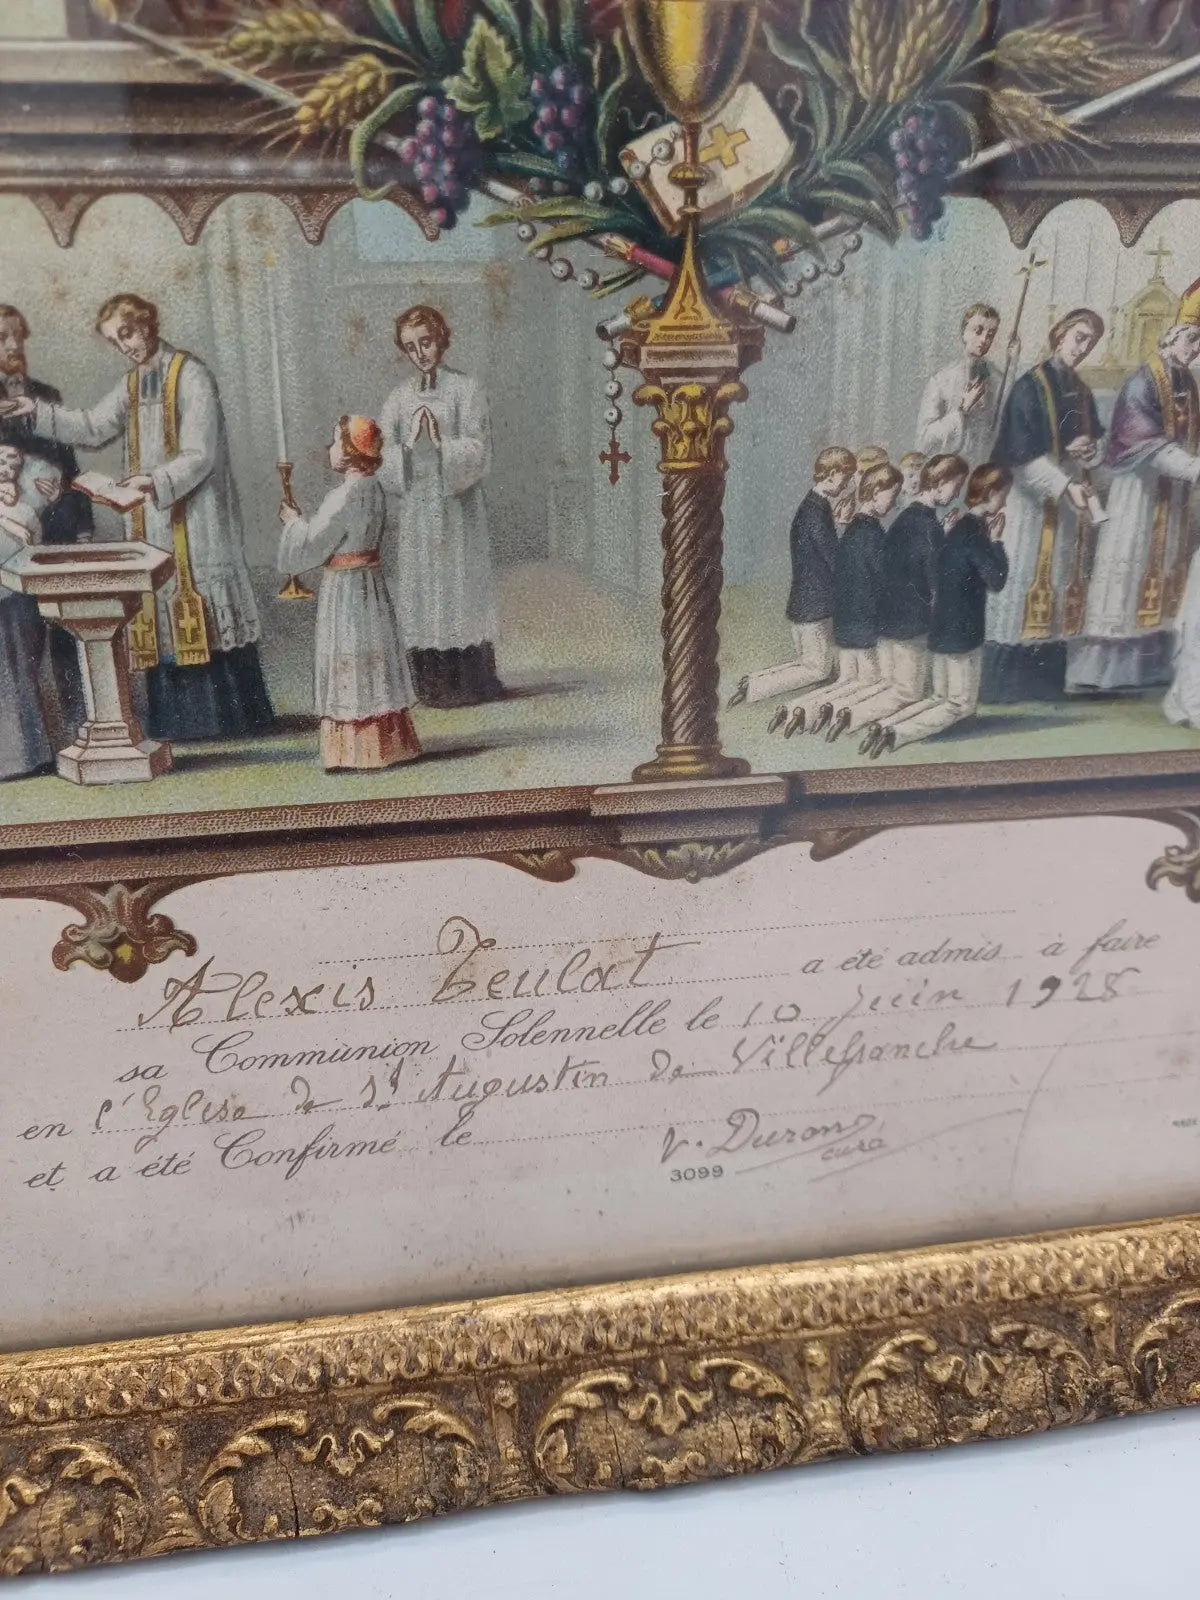 Alexis Teulat a été admis à faire
sa Communion Solennelle le 10 Juin 1928
en l'Eglise de St Augustin de Villefranche
et a été Confirmé le
V. Durand
curé
3099